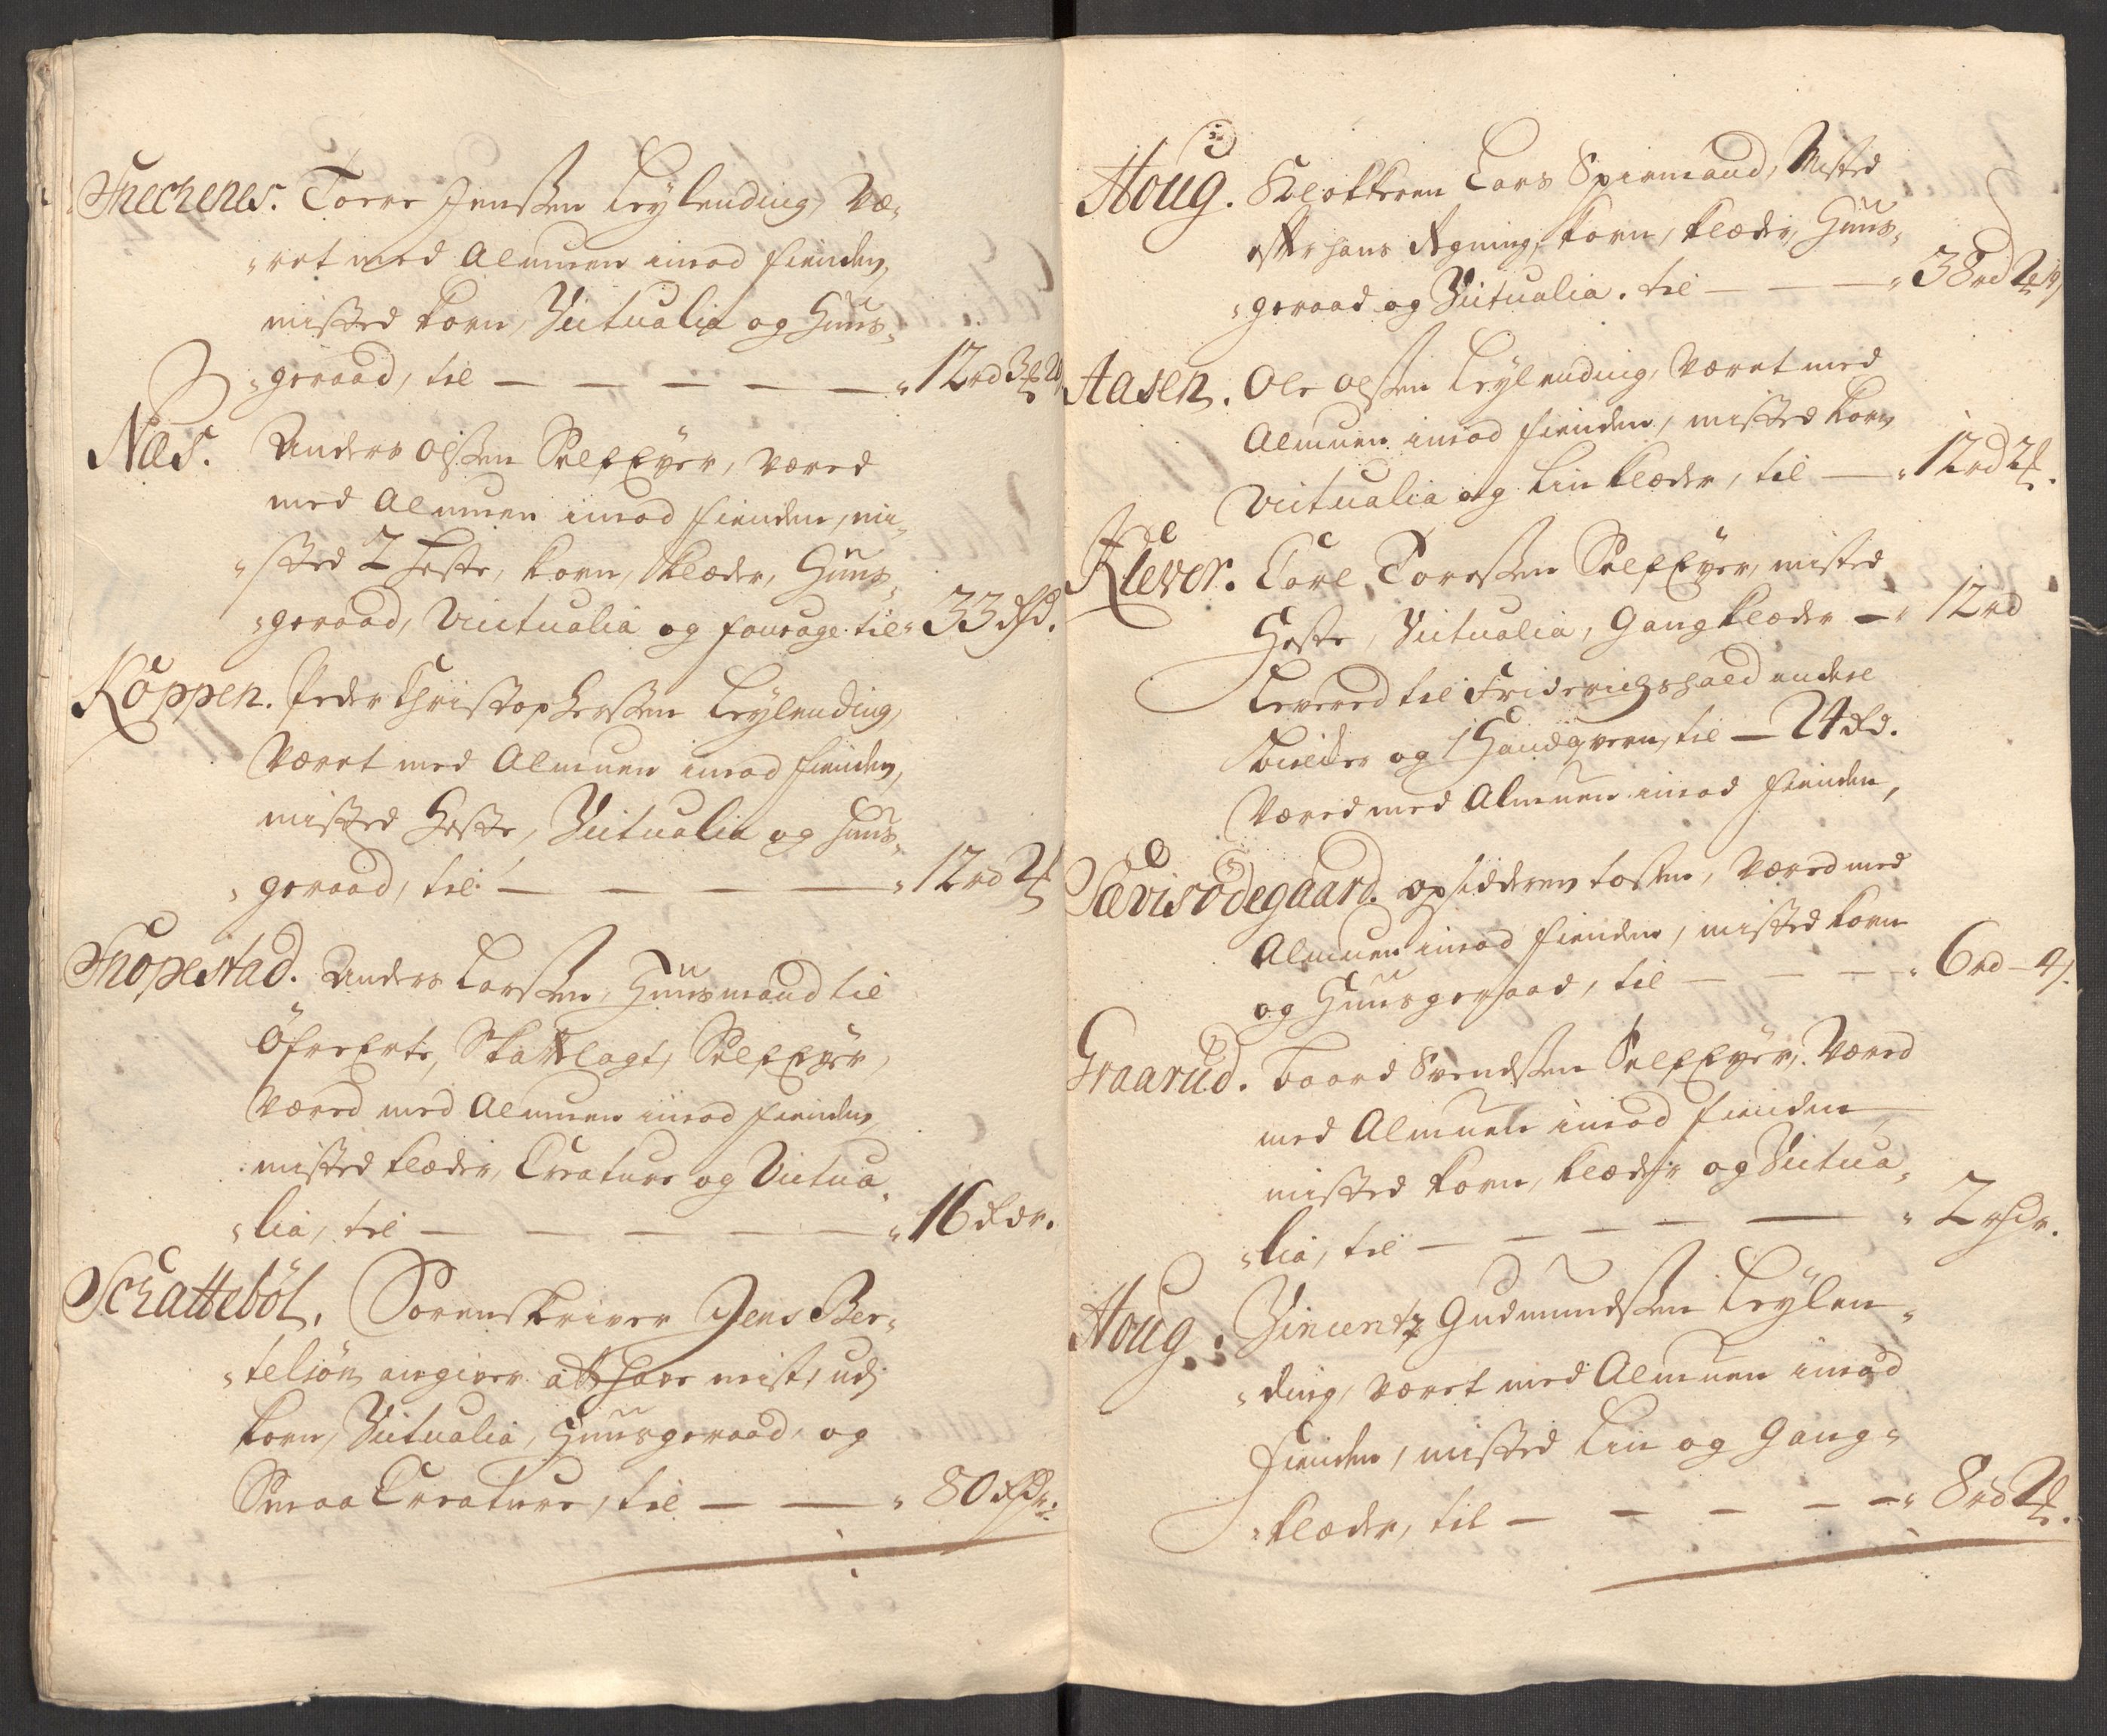 Trechenes. Torre Jenssen Leylending, Væ,
"ret med Almuen imod fienden,
misted korn, Victualia og Huus,
"geraad, til — — — — — " 12 rd 3
Næs. Anders Olssen Self Eyer, Været
med Almuen imod fienden, mi,
"sted 2 heste, korn, klæder, Huus,
"geraad, Victualia og fourage til " 33 rd.
Köppen. Peder Christophersen Leylending,
Været med Almuen imod fienden,
misted Heste, Victualia og Huus,
"geraad, til — — — — " 12 rd 2
Knopestad. Anders Larssen, Huusmand til
Öfre Erte, Skattlagt, Self Eyer,
Været med Almuen imod fienden,
misted klæder, Creature og Victua,
"lia, til — — — — — " 16 rdr.
Schatteböl. Sorenskriver Jens Ber,
"telsön angiver att have mist, udj
korn, Victualia, Huusgeraad, og
Smaa Creature, til — — " 80 rdr.
Houg. Klokkeren Lars Spirmand, Misted
efter hans Regning, korn, klæder, Huus,
"geraad og Victualia. til — — — " 38 rd
Aasen. Ole Olssen Leylending, Været med
Almuen imod fienden, misted korn
Victualia og Linklæder, til — " 12 rd 2
Klever. Carl Toressen Self Eyer, misted
Heste, Victualia, Gangklæder — " 12 rd
Levered til Friderichshald
og 1 Handqvern, til — 24 rd.
Været med Almuen imod fienden,
Sævisödegaard. opsidderen Været med
Almuen imod fienden, misted korn
og Huusgeraad, til — — — " 6 rd
Graarud. Baard Svendssen Self Eyer, Været
med Almuen imod fienden
misted korn, klæder og Victua,
"lia, til — — — — — " 2 rdr.
Houg. Vincentz Gudmundssen Leylen,
"ding, Været med Almuen imod
fienden, misted Lin og Gang,
"klæder, til — — — — — " 8 rd 2